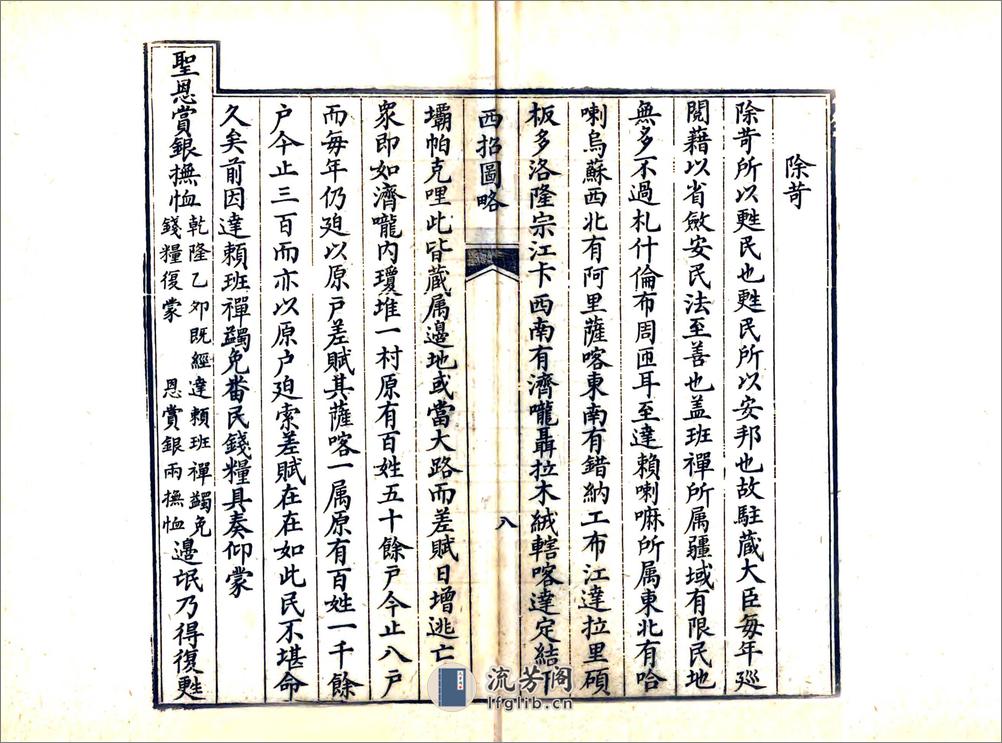 除苛
除苛所以甦民也甦民所以安邦也故駐藏大臣每年廵
閱藉以省斂安民法至善也盖班禪所属疆域有限民地
無多不過札什倫布周匝耳至達賴喇嘛所属東北有哈
喇烏蘇西北有阿里薩喀東南有錯納工布江達拉里碩
板多洛隆宗江卡西南有濟嚨聶拉木絨轄喀達定結干
西招圖略
八
壩帕克哩此皆藏属邊地或當大路而差賦日增逃亡
衆即如濟嚨内瓊堆一村原有百姓五十餘戸今止八戸
而每年仍廹以原戸差賦其薩喀一属原有百姓一千餘
户今止三百而亦以原户廹索差賦在在如此民不堪命
久矣前因達賴班禪蠲免畨民錢糧具奏仰蒙
聖恩賞銀撫恤
乾隆乙夘既經達賴班禪蠲免
錢糧復蒙 恩賞銀兩撫恤
邊氓乃得復甦
流芳阁
lfglib.cn